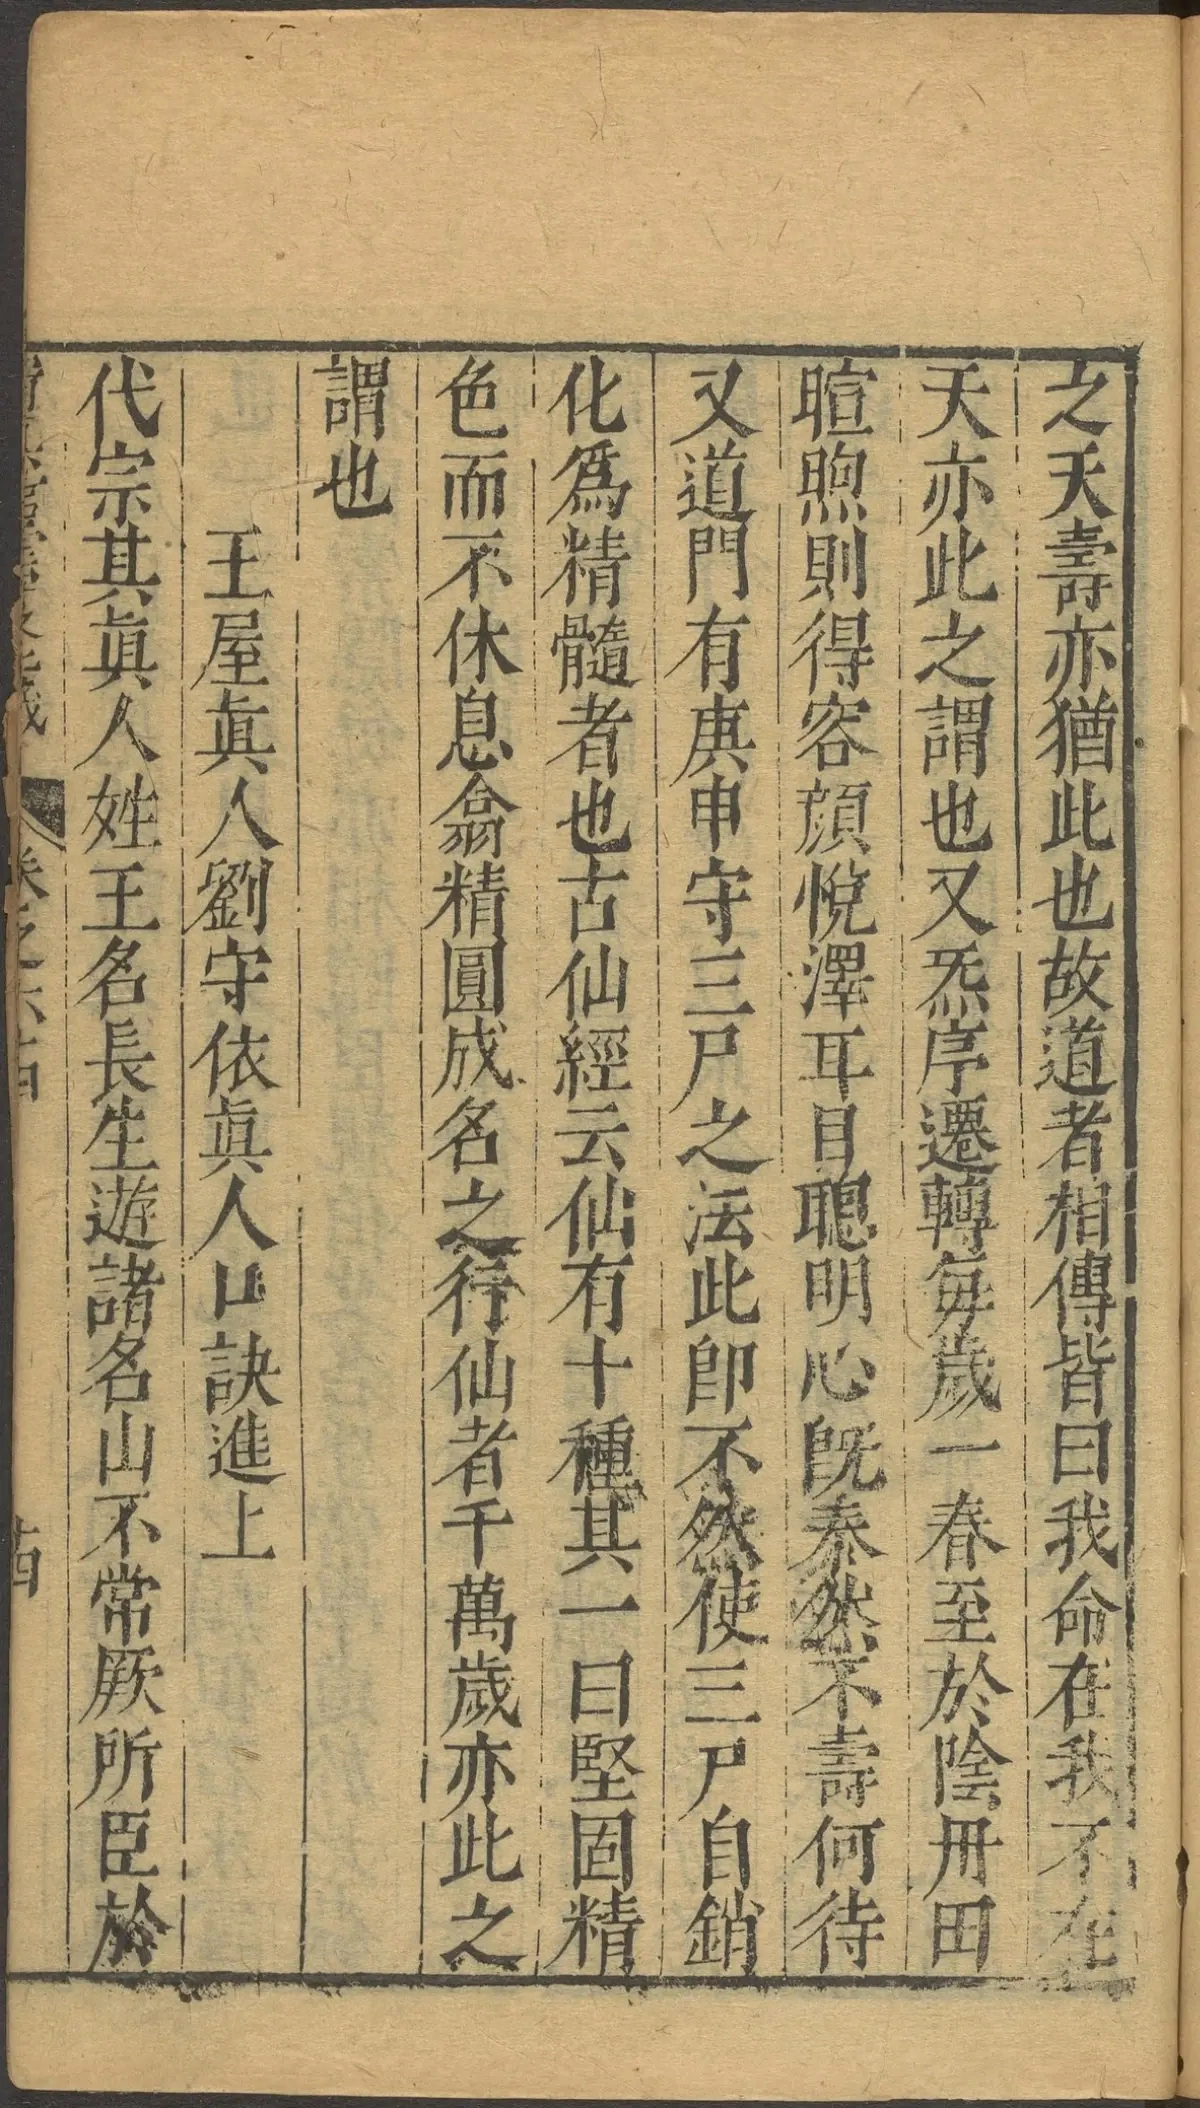 之夭壽亦猶此也故道者相傳皆曰我命在我不在
天亦此之謂也又炁序遷轉每歲一春至於陰丹田
暄煦則得容顔悅澤耳目聰明心旣泰然不壽何待
又道門有庚申守三尸之法此卽不然使三尸自銷
化爲精髓者也古仙經云仙有十種其一曰堅固精
色而不休息翕精圓成名之行仙者千萬歲亦此之
謂也
王屋眞人劉守依眞人口訣進上
代宗其眞人姓王名長生遊諸名山不常厥所臣於
卷之六十四